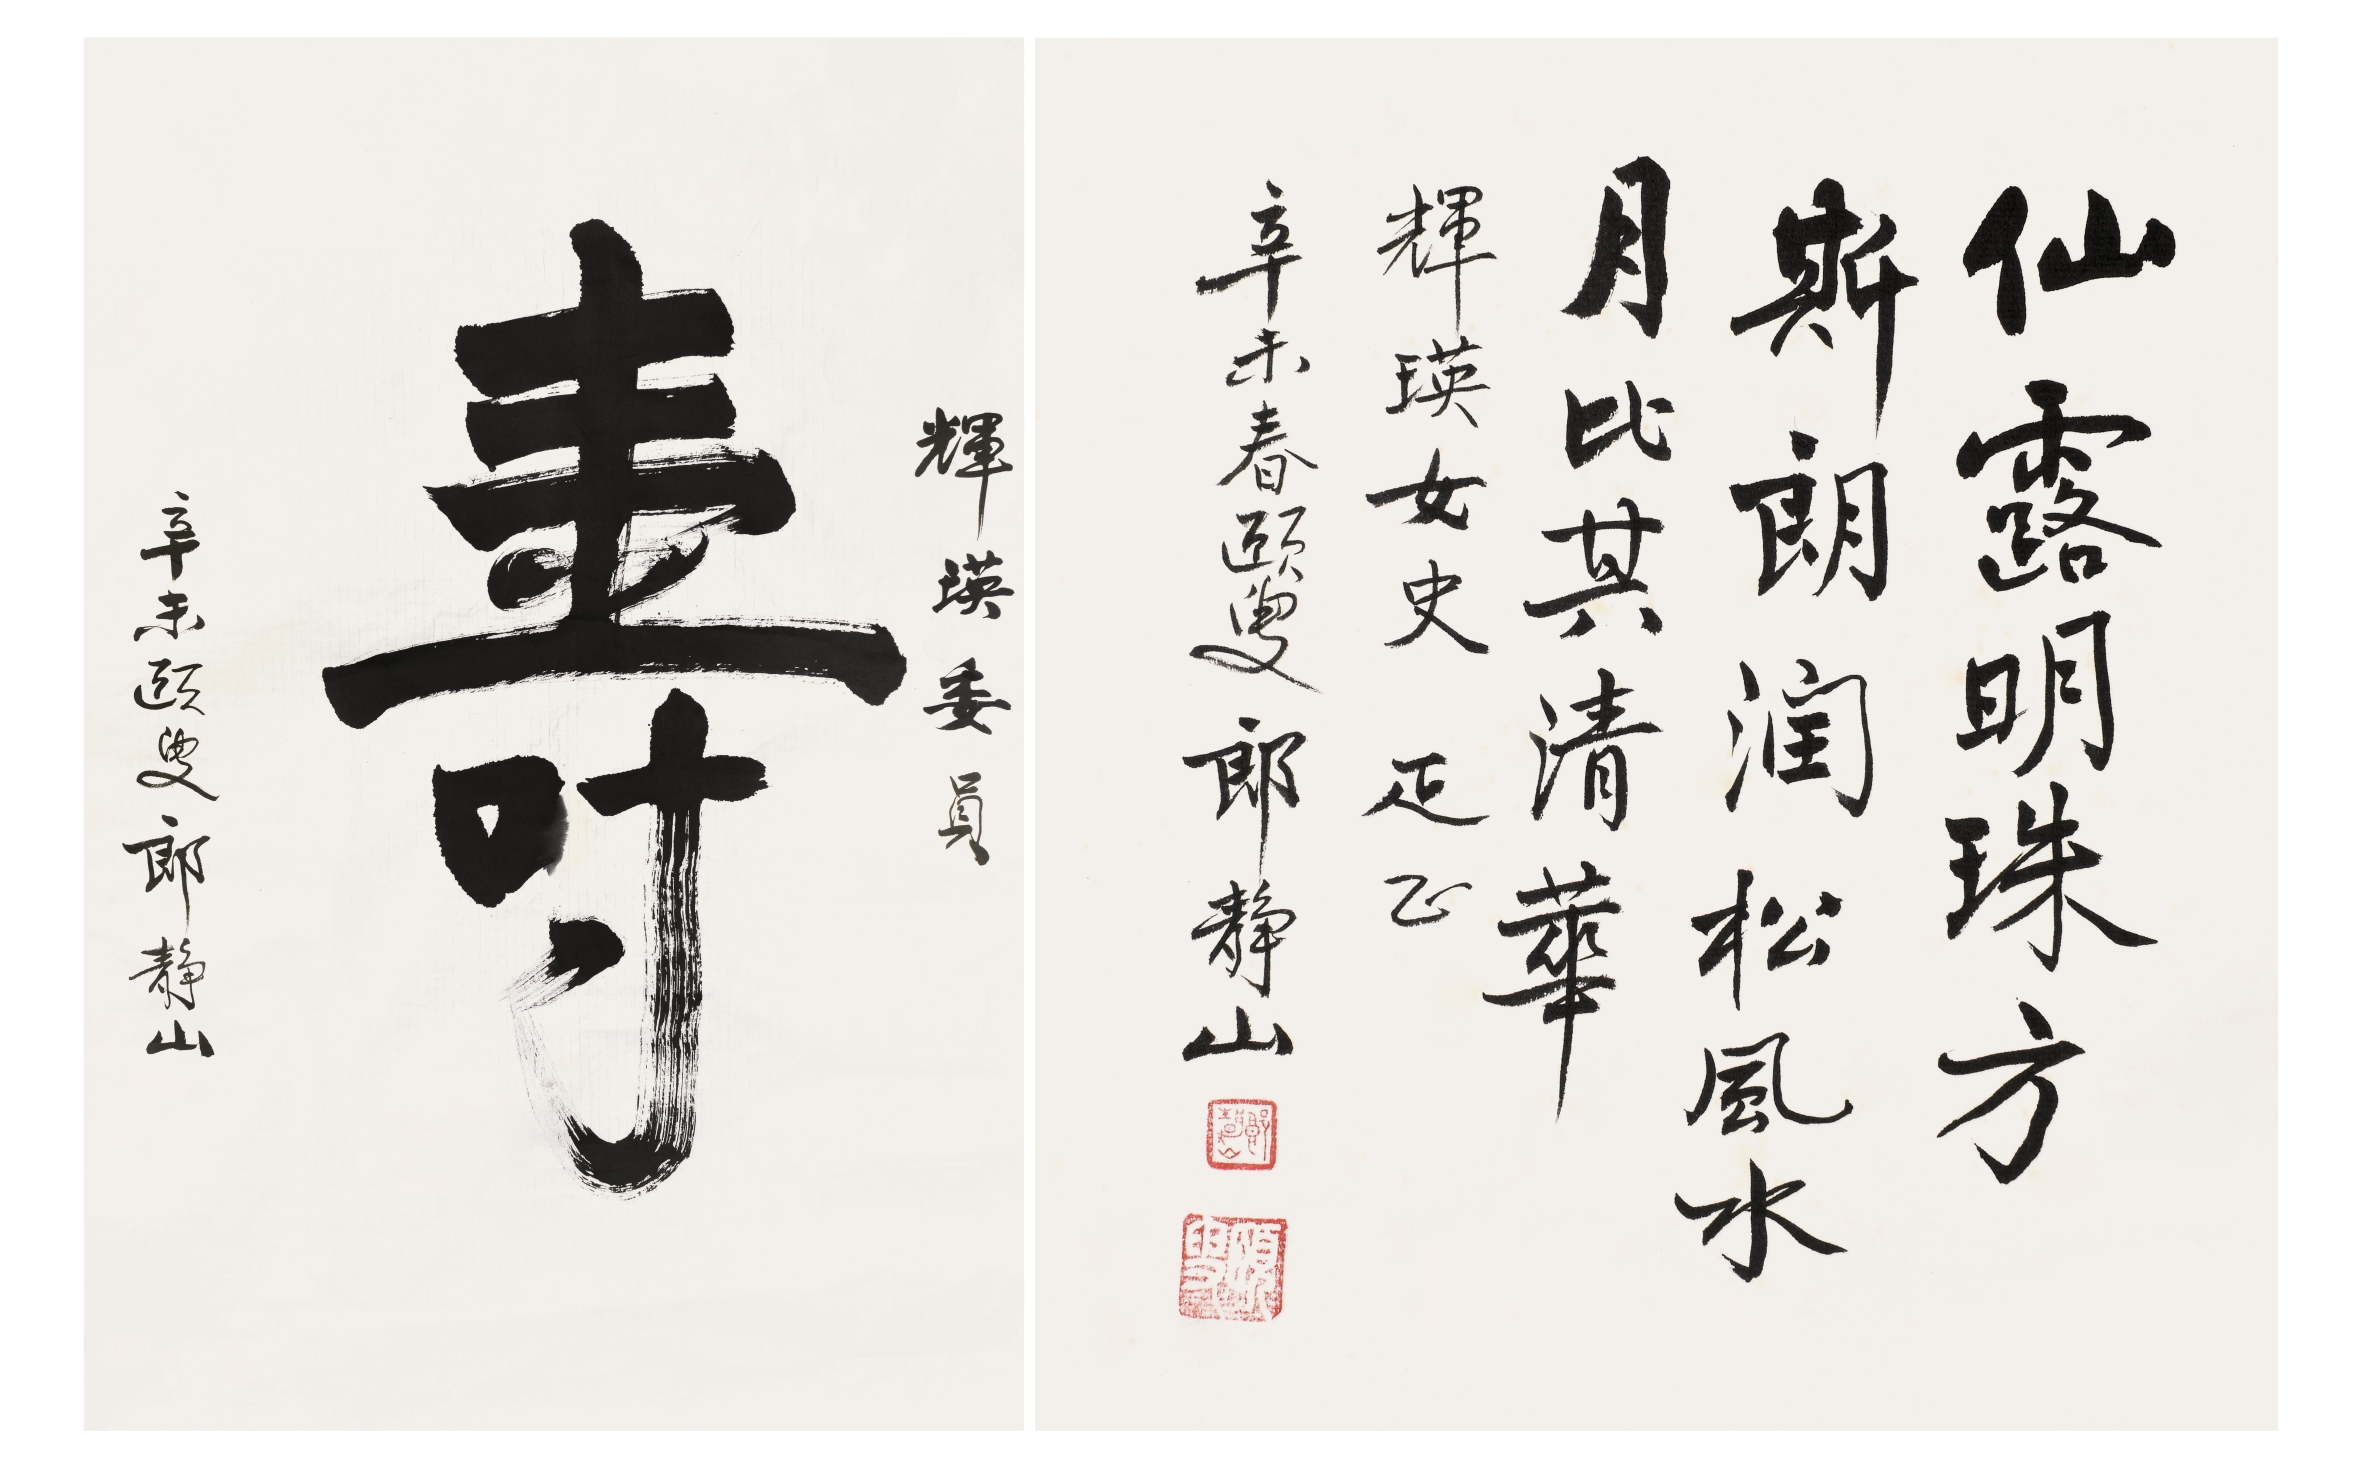 仙露明珠方
斯朗润松風水
月比其清華
輝瑛女史 疋正
辛未春頤叟郎静山
輝瑛委員
壽
辛未頤叟郎静山